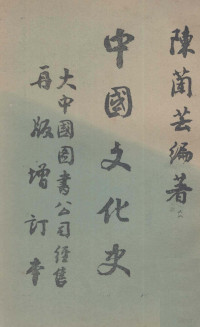 陳蔺芸編著
中國文化史
大中國圖書公司经售
再版增訂本